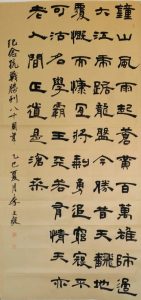 鐘山風雨起蒼黃百萬雄師過
大江虎踞龍盤今勝昔天翻地
覆慨而慷宜將剩勇追窮寇不
可沽名學霸王天若有情天亦
老人間正道是滄桑
紀念抗戰勝利八十周年 乙巳夏月李